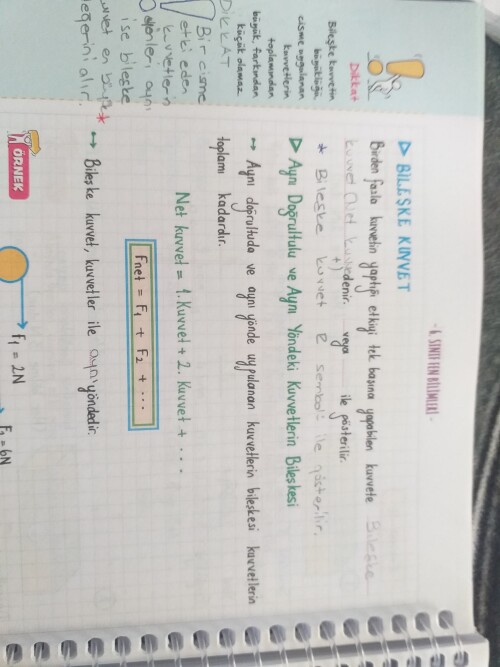 - 6. SINIF FEN BİLİMLERİ -
▷ BİLEŞKE KUVVET
Birden fazla kuvvetin yaptığı etkiyi tek başına yapabilen kuvvete Bileşke
kuvvet denir. veya ile gösterilir.
* Bileşke kuvvet R sembolü ile gösterilir.
▷ Aynı Doğrultulu ve Aynı Yöndeki Kuvvetlerin Bileşkesi
→ Aynı doğrultuda ve aynı yönde uygulanan kuvvetlerin bileşkesi kuvvetlerin
toplamı kadardır.
Net kuvvet = 1. Kuvvet + 2. Kuvvet + ...
Fnet = F₁ + F₂ + ...
→ Bileşke kuvvet, kuvvetler ile aynı yöndedir.
ÖRNEK
F₁ = 2N
= 6N
Dikkat
Bileşke kuvvetin
büyüklüğü
cisme uygulanan
kuvvetlerin
toplamından
büyük, farkından
küçük olamaz
DİKKAT
Bir cisme
etki eden
kuvvetlerin
aynı
ise bileşke
kuvvet en büyük
değerini alır.